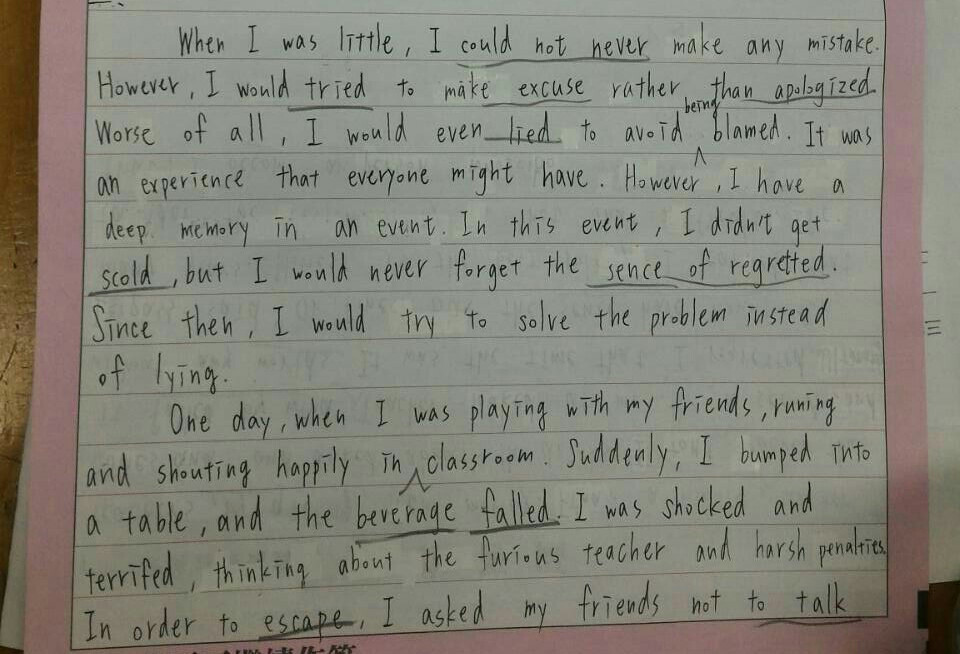 When I was little, I could not never make any mistake.
However, I would tried to make excuse rather than apologized.
Worse of all, I would even lied to avoid being blamed. It was
an experience that everyone might have. However, I have a
deep memory in an event. In this event, I didn't get
scold, but I would never forget the sence of regretted.
Since then, I would try to solve the problem instead
of lying.
One day, when I was playing with my friends, runing
and shouting happily in classroom. Suddenly, I bumped into
a table, and the beverage falled. I was shocked and
terrifed, thinking about the furious teacher and harsh penalties.
In order to escape, I asked my friends not to talk